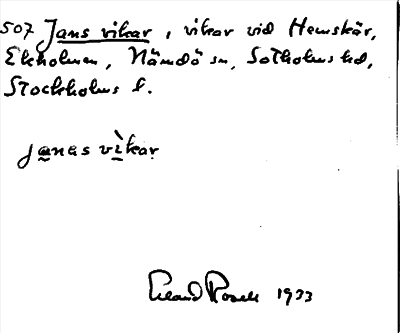 507 Jans vikar, vikar vid Hemskär,
Ekholmen, Nämdö sn, Sotholms hd,
Stockholms l.
janas vìkar
Erland Rosell 1933